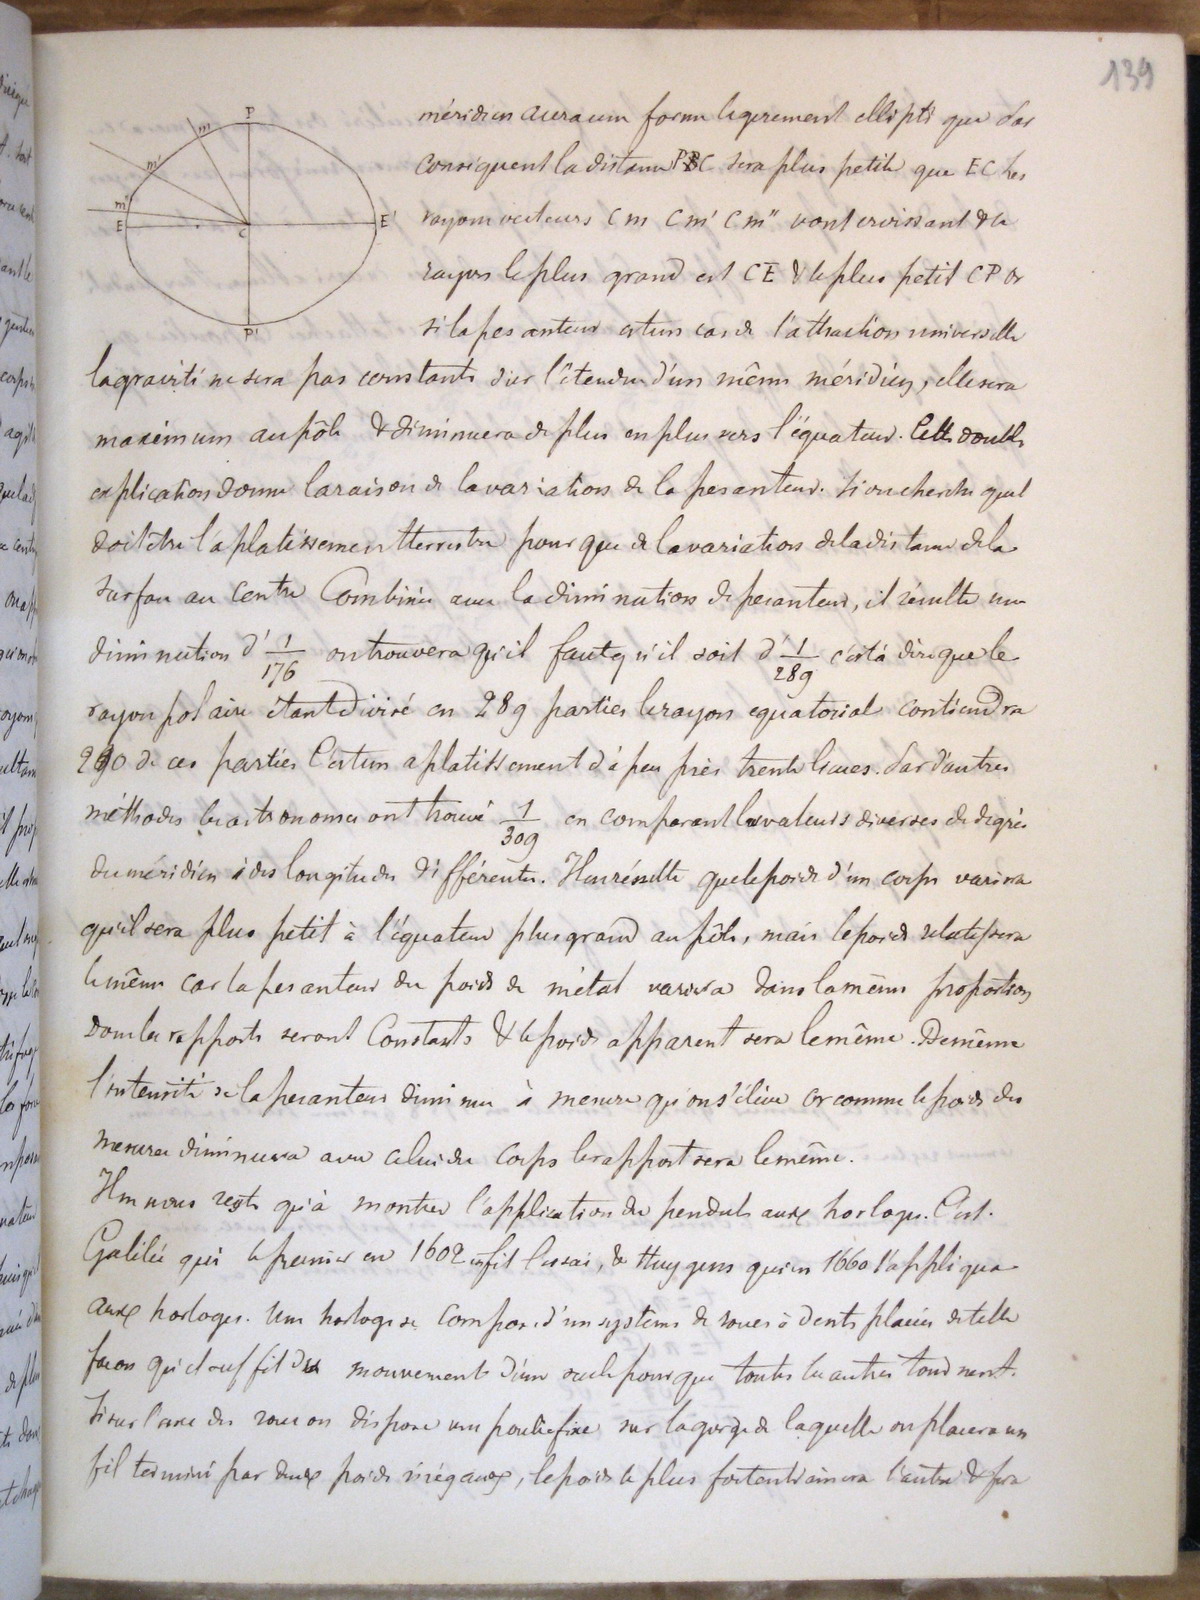 139
P
m
m'
m"
E
C
E'
P'
méridien aura une forme légerement elliptique Par
conséquent la distance PC sera plus petite que EC les
rayons vecteurs Cm Cm' Cm" vont croissant & le
rayon le plus grand est CE & le plus petit CP Or
si la pesanteur est un cas de l'attraction universelle
la gravité ne sera pas constante sur l'étendue d'un même méridien, elle sera
maximum au pôle & diminuera de plus en plus vers l'équateur. Cette double
explication donne la raison de la variation de la pesanteur. Si on cherche quel
doit être l'aplatissement terrestre pour que de la variation de la distance de la
surface au centre Combinée avec la diminution de pesanteur, il résulte une
diminution d' 1/176 on trouvera qu'il faut qu'il soit d' 1/289 c'est à dire que le
rayon polaire étant divisé en 289 parties le rayon equatorial contiendra
290 de ces parties C'est un aplatissement d'à peu près trente lieues. Par d'autres
méthodes les astronomes ont trouvé 1/309 en comparant les valeurs diverses de degrés
du méridien à des longitudes différentes. Il en résulte que le poids d'un corps variera
qu'il sera plus petit à l'équateur plus grand au pôle, mais le poids relatif sera
le même car la pesanteur du poids de métal variera dans la même proportion
donc les rapports seront Constants & le poids apparent sera le même. De même
l'intensité de la pesanteur diminue à mesure qu'on s'élève or comme le poids des
mesures diminuera avec celui du corps le rapport sera le même.
Il ne nous reste qu'à montrer l'application du pendule aux horloges. C'est
Galilée qui le premier en 1602 en fit l'essai, & Huygens qui en 1660 l'appliqua
aux horloges. Une horloge se compose d'un système de roues à dents placées de telle
facon qu'il suffit du mouvement d'une seule pour que toutes les autres tournent.
Si sur l'axe des roues on dispose une poulie fixe sur la gorge de laquelle on placera un
fil terminé par deux poids inégaux, le poids le plus fort entrainera l'autre & fera